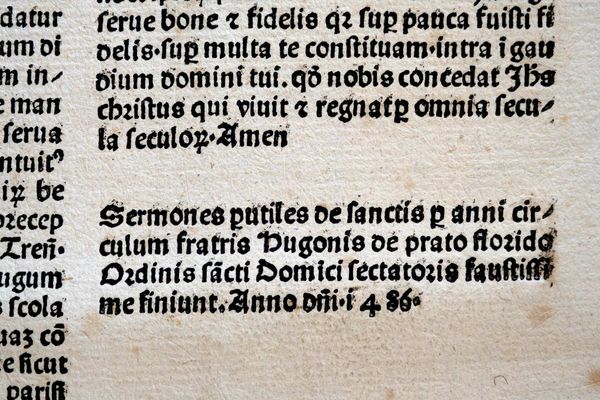 datur
um di
m in⸗
e man
serua
ntuit⁹
iꝝ be
precep
Treñ·
ugum
s scola
uaꝫ cō
te sicut
parisi
serue bone ⁊ fidelis qꝛ suꝑ pauca fuisti fi
delis·suꝑ multa te constituam·intra i gau
dium domini tui. qō nobis concedat Jhs
christus qui viuit ⁊ regnat ꝑ omnia secu⸗
la seculoꝝ·Amen
Sermones putiles de sanctis ꝑ anni cir⸗
culum fratris Hugonis de prato florido
Ordinis sācti Domici sectatoris faustissi
me finiunt. Anno dñi·i 4 86·